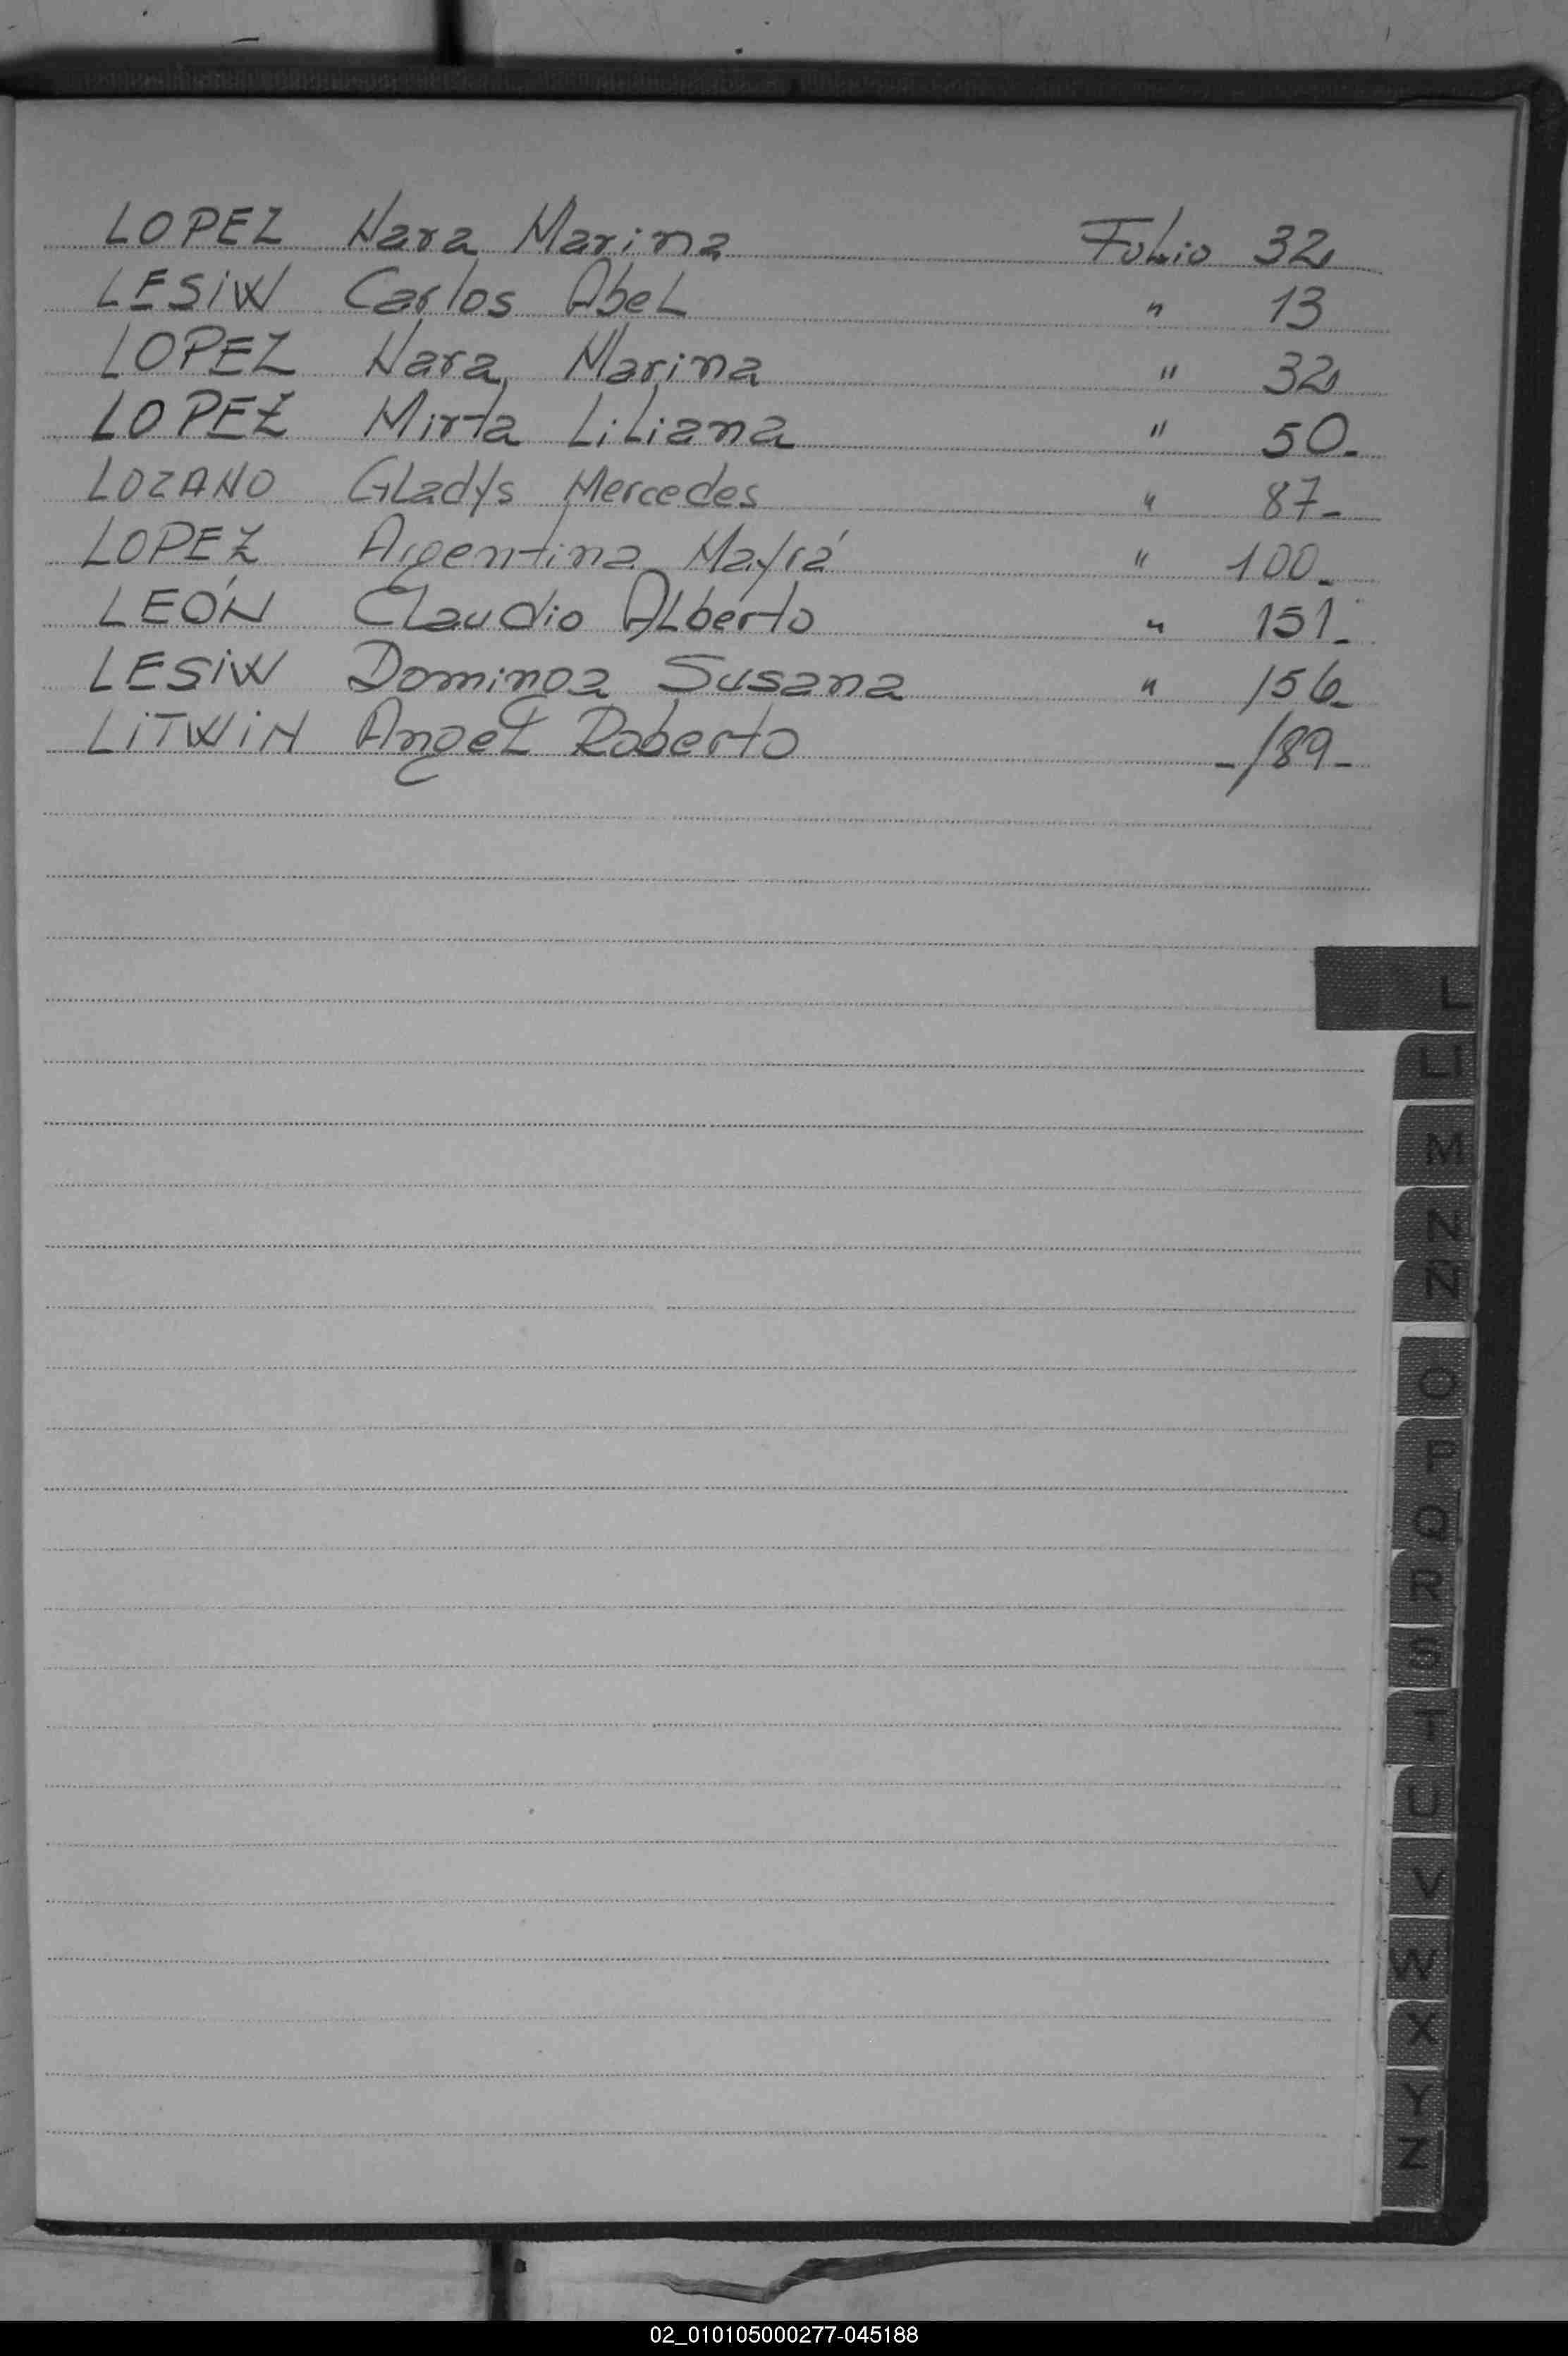 LOPEZ Nara Marina Folio 32
LESiW Carlos Abel " 13
LOPEZ Nara, Marina " 32
LOPEZ Mirta Liliana " 50-
LOZANO Gladys Mercedes " 87-
LOPEZ Argentina " 100-
LEÓN Claudio Alberto " 151-
LESiW Dominga Susana " 156-
LiTWiN Angel Roberto - 189-
L
Ll
M
N
Ñ
O
P
Q
R
S
T
U
V
W
X
Y
Z
02_010105000277-045188